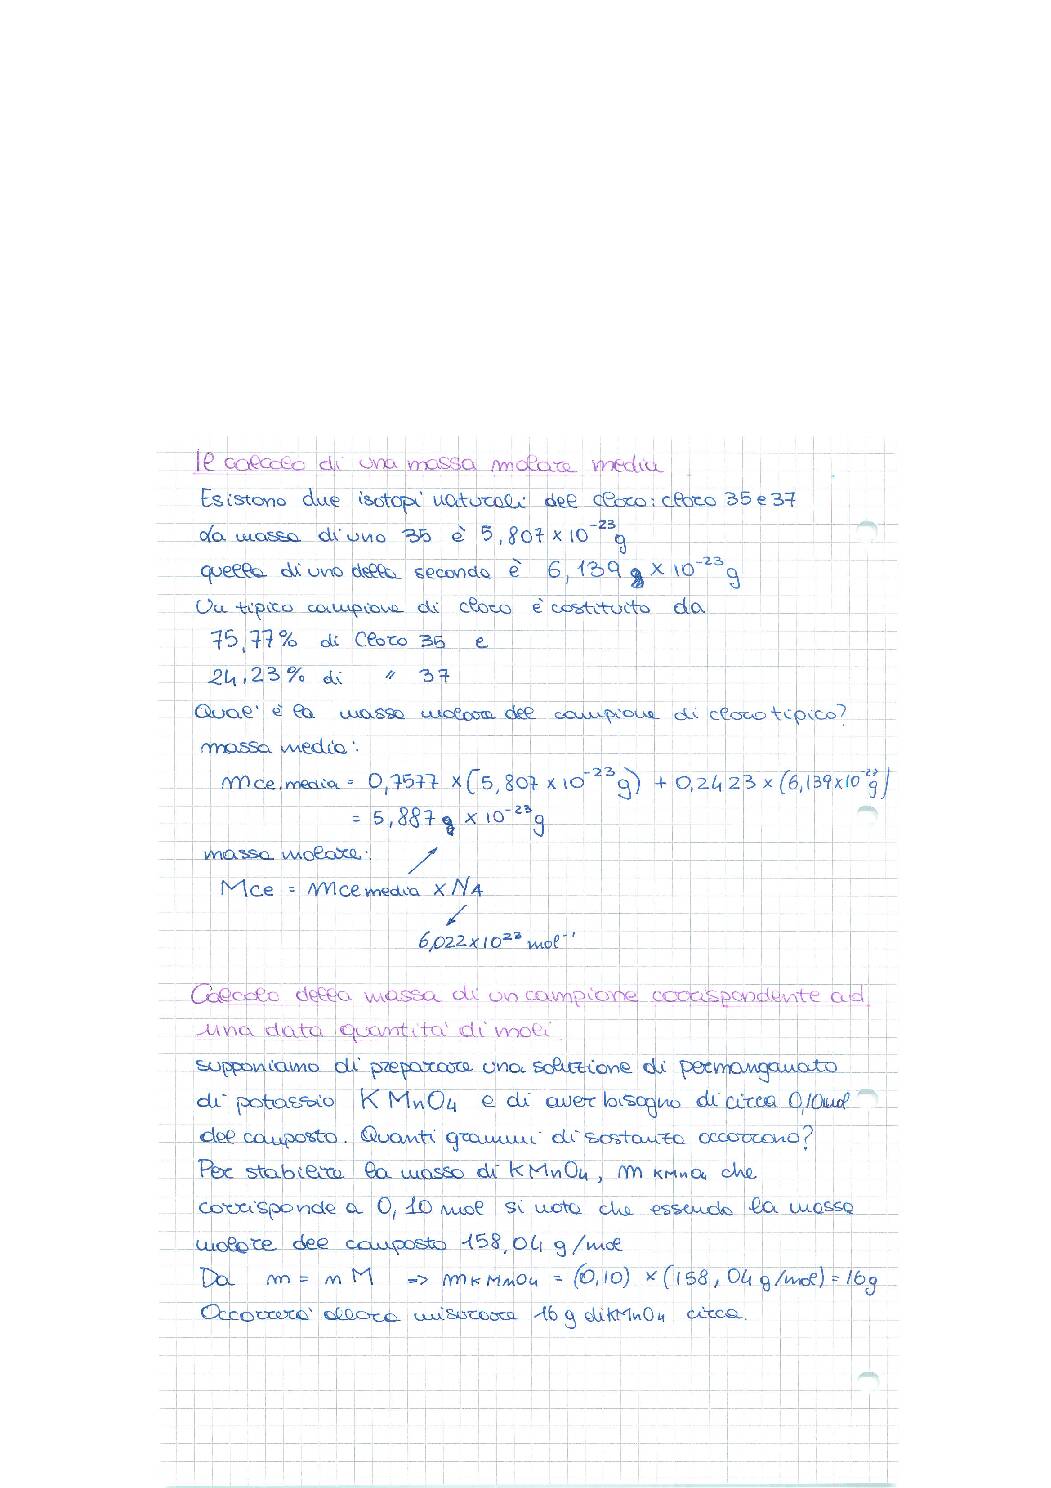 Il calcolo di una massa molare media
Esistono due isotopi naturali del cloro: cloro 35 e 37
La massa di uno 35 è 5,807 × 10⁻²³ g
quella di uno della seconda è 6,139 g × 10⁻²³ g
Un tipico campione di cloro è costituito da
75,77% di Cloro 35 e
24,23% di " 37
Qual' è la massa molare del campione di cloro tipico?
massa media:
mCl,media = 0,7577 × (5,807 × 10⁻²³ g) + 0,2423 × (6,139×10⁻²³ g)
= 5,887 g × 10⁻²³ g
massa molare:
MCl = mCl media × NA
6,022×10²³ mol⁻¹
Calcolo della massa di un campione corrispondente ad
una data quantità di moli
supponiamo di preparare una soluzione di permanganato
di potassio KMnO4 e di aver bisogno di circa 0,10 mol
del composto. Quanti grammi di sostanza occorrono?
Per stabilire la massa di KMnO4, m KMnO4 che
corrisponde a 0,10 mol si nota che essendo la massa
molare del composto 158,04 g/mol
Da m = n M => mKMnO4 = (0,10) × (158,04 g/mol) = 16g
Occorrerà allora misurare 16 g di KMnO4 circa.